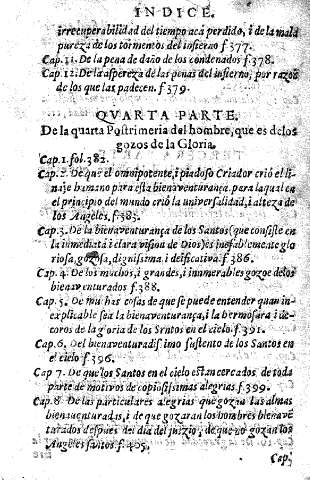 INDICE.
irrecuperabilidad del tiempo acà perdido, i de la mala
pureza de los tormentos del infierno f 377.
Cap. 11. De la pena de daño de los condenados f.378.
Cap. 12. De la aspereza de las penas del infierno, por razon
de los que las padecen. f 379.
QVARTA PARTE.
De la quarta Postrimeria del hombre, que es de los
gozos de la Gloria.
Cap. 1. fol. 382.
Cap. 2. De que el omnipotente, i piadoso Criador criò el li-
naje humano para esta bienaventurança. para la qual en
el principio del mundo criò la universalidad, i alteza de
los Angeles. f.383.
Cap. 3. De la bienaventurança de los Santos (que consiste en
la inmediata i clara vision de Dios) es inefablemente glo
riosa, gozosa, dignissima, i deificativa. f 386.
Cap. 4. De los muchos, i grandes, i innumerables gozos de los
bienaventurados f 388.
Cap. 5. De muchas cosas de que se puede entender quan in-
explicable sea la bienaventurança, i la hermosura i de-
coros de la gloria de los Santos en el cielo. f.391.
Cap. 6. Del bienaventuradissimo sustento de los Santos en
el cielo f 396.
Cap 7. De que los Santos en el cielo estan cercados de toda
parte de motivos de copiosissimas alegrias. f.399.
Cap. 8. De las particulares alegrias que gozan las almas
bienaventuradas, i de que gozaran los hombres bienave
turados despues del dia del juizio, de que no gozan los
Angeles santos f. 405.
Cap.